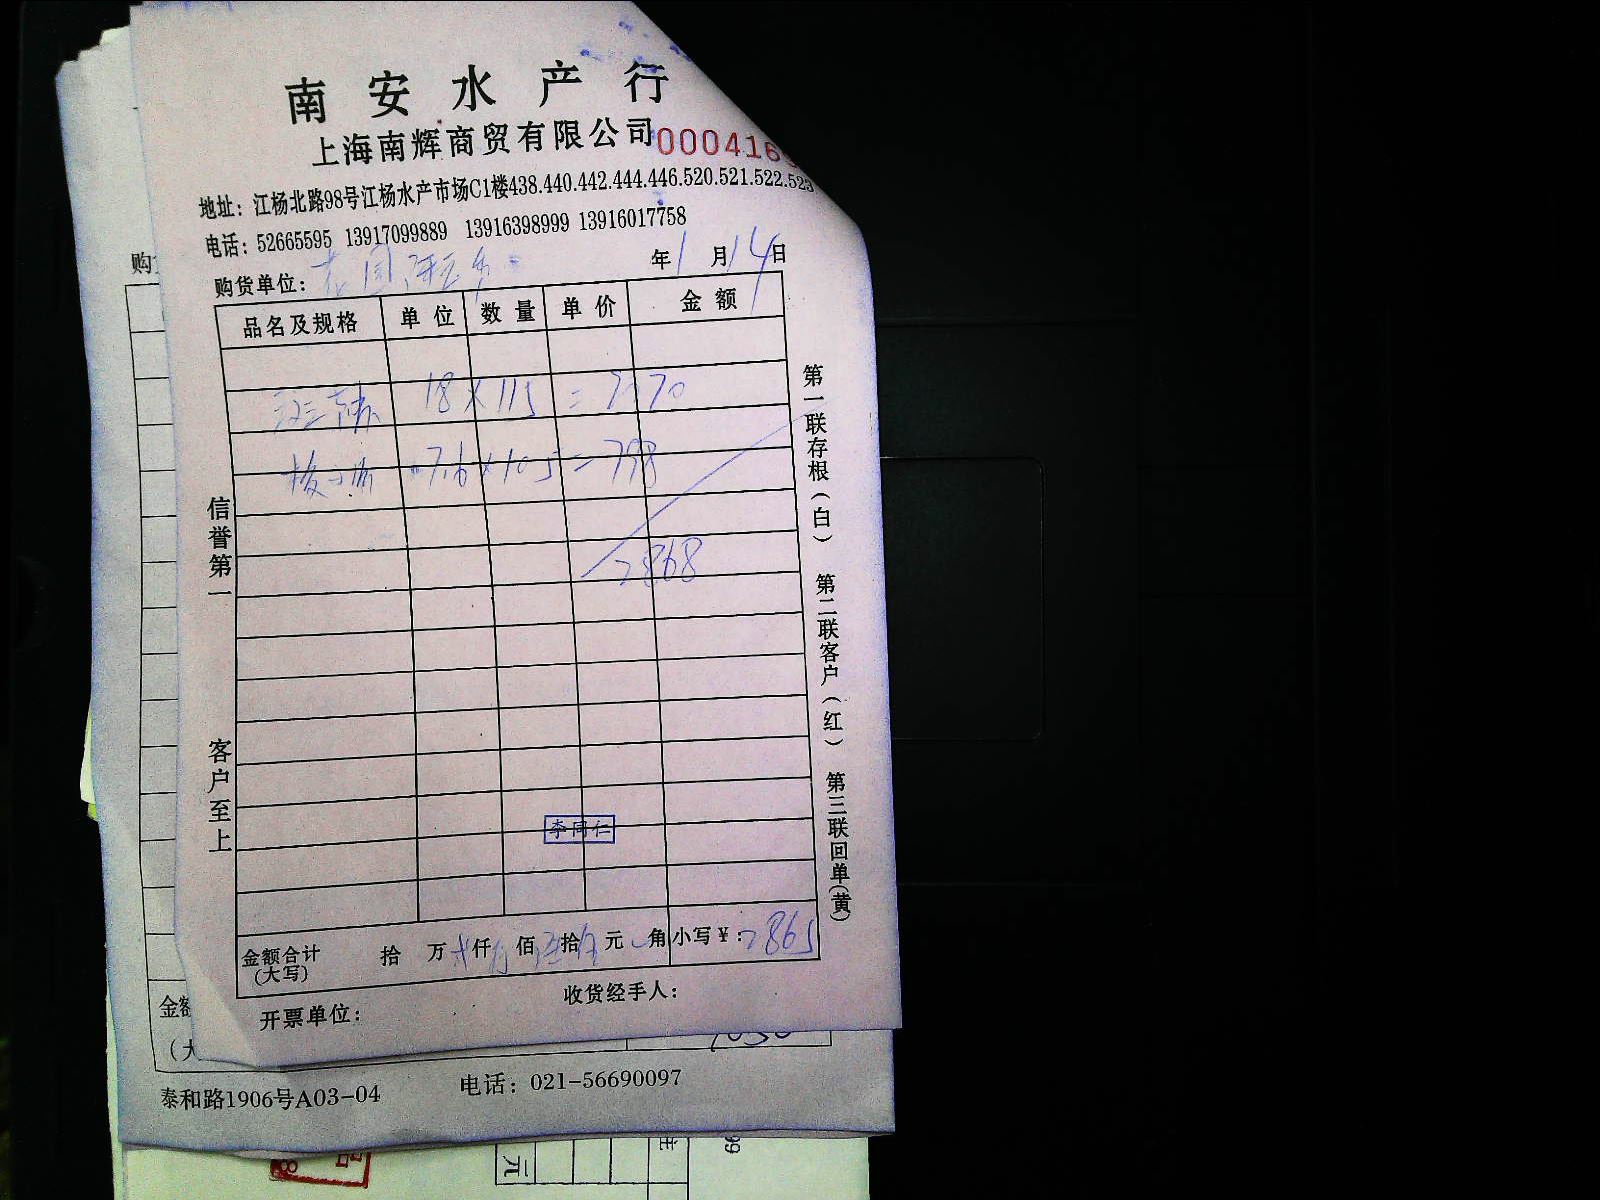 南安水产行
上海南辉商贸有限公司 000416
地址：江杨北路98号江杨水产市场C1楼438.440.442.444.446.520.521.522.523
电话：52665595 13917099889 13916398999 13916017758
购货单位：
年1月14日
品名及规格 单位 数量 单价 金额
18×115=2070
7.6×105=798
2868
信誉第一
客户至上
李同仁
第一联存根（白） 第二联客户（红） 第三联回单（黄）
金额合计（大写） 拾 万 仟 佰 拾 元 角 小写￥：2865
开票单位：
收货经手人：
购
金额
（大
泰和路1906号A03-04 电话：021-56690097
元
99